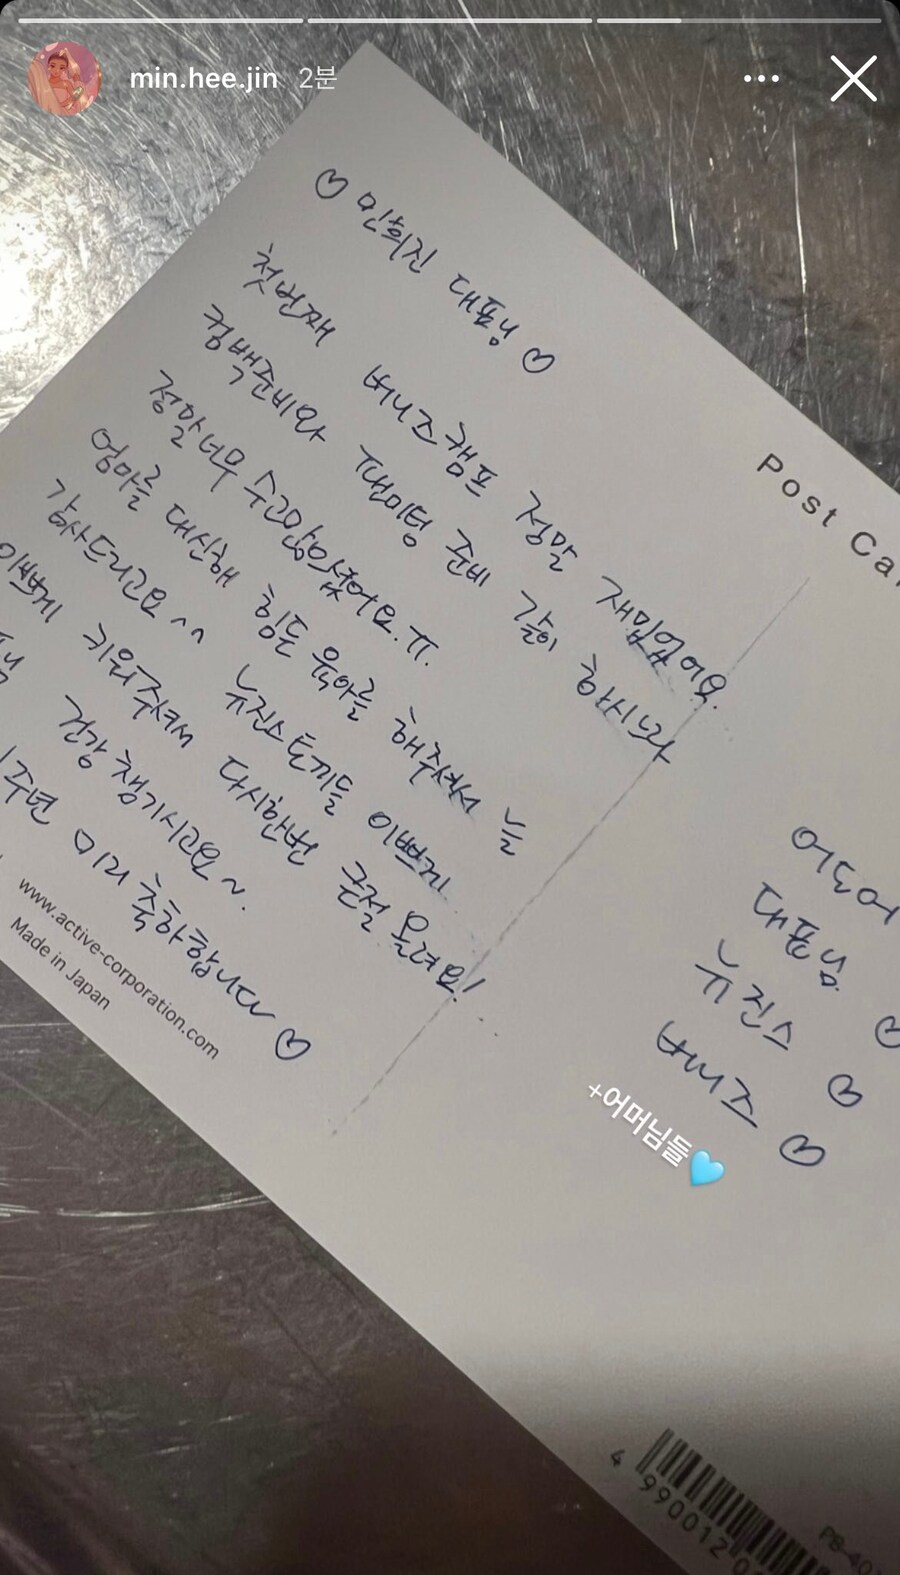 min.hee.jin 2분
♡ 민희진 대표님 ♡
첫번째 버니즈캠프 정말 재밌었어요.
컴백준비와 팬미팅 준비 같이 하시느라
정말 너무 수고많으셨어요. ㅠ.
엄마를 대신해 힘든 육아를 해주셔서 늘
감사드리고요 ^^ 뉴진스토끼들 이쁘게
이쁘게 키워주셔서 다시한번 큰절 올려요!
건강 챙기시고요~.
1주년 미리 축하합니다 ♡
www.active-corporation.com
Made in Japan
Post Ca
어도어
대표님 ♡
뉴진스 ♡
버니즈 ♡
+어머님들🩵
4 990012 0
PB-40